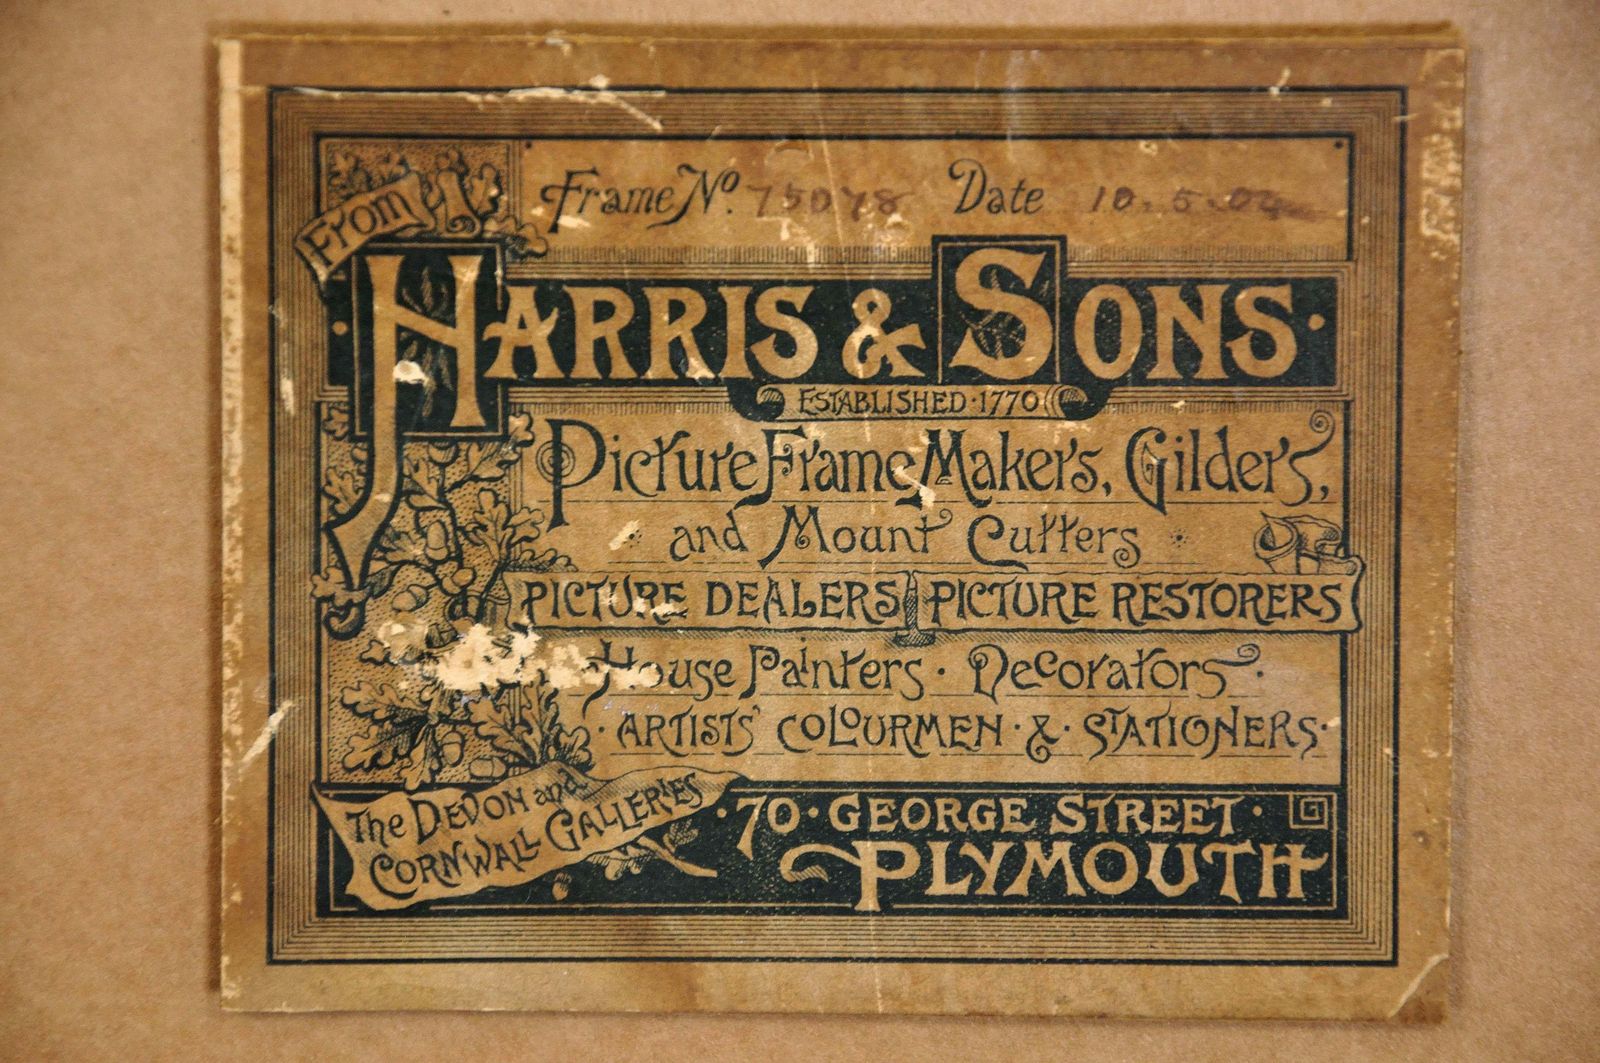 From
Frame No. 75078 Date 10.5.04
HARRIS & SONS.
ESTABLISHED · 1770
Picture Frame Makers, Gilders,
and Mount Cutters
PICTURE DEALERS PICTURE RESTORERS
House Painters · Decorators ·
· ARTISTS' COLOURMEN · & · STATIONERS ·
The DEVON and
CORNWALL GALLERIES
· 70 · GEORGE STREET ·
PLYMOUTH